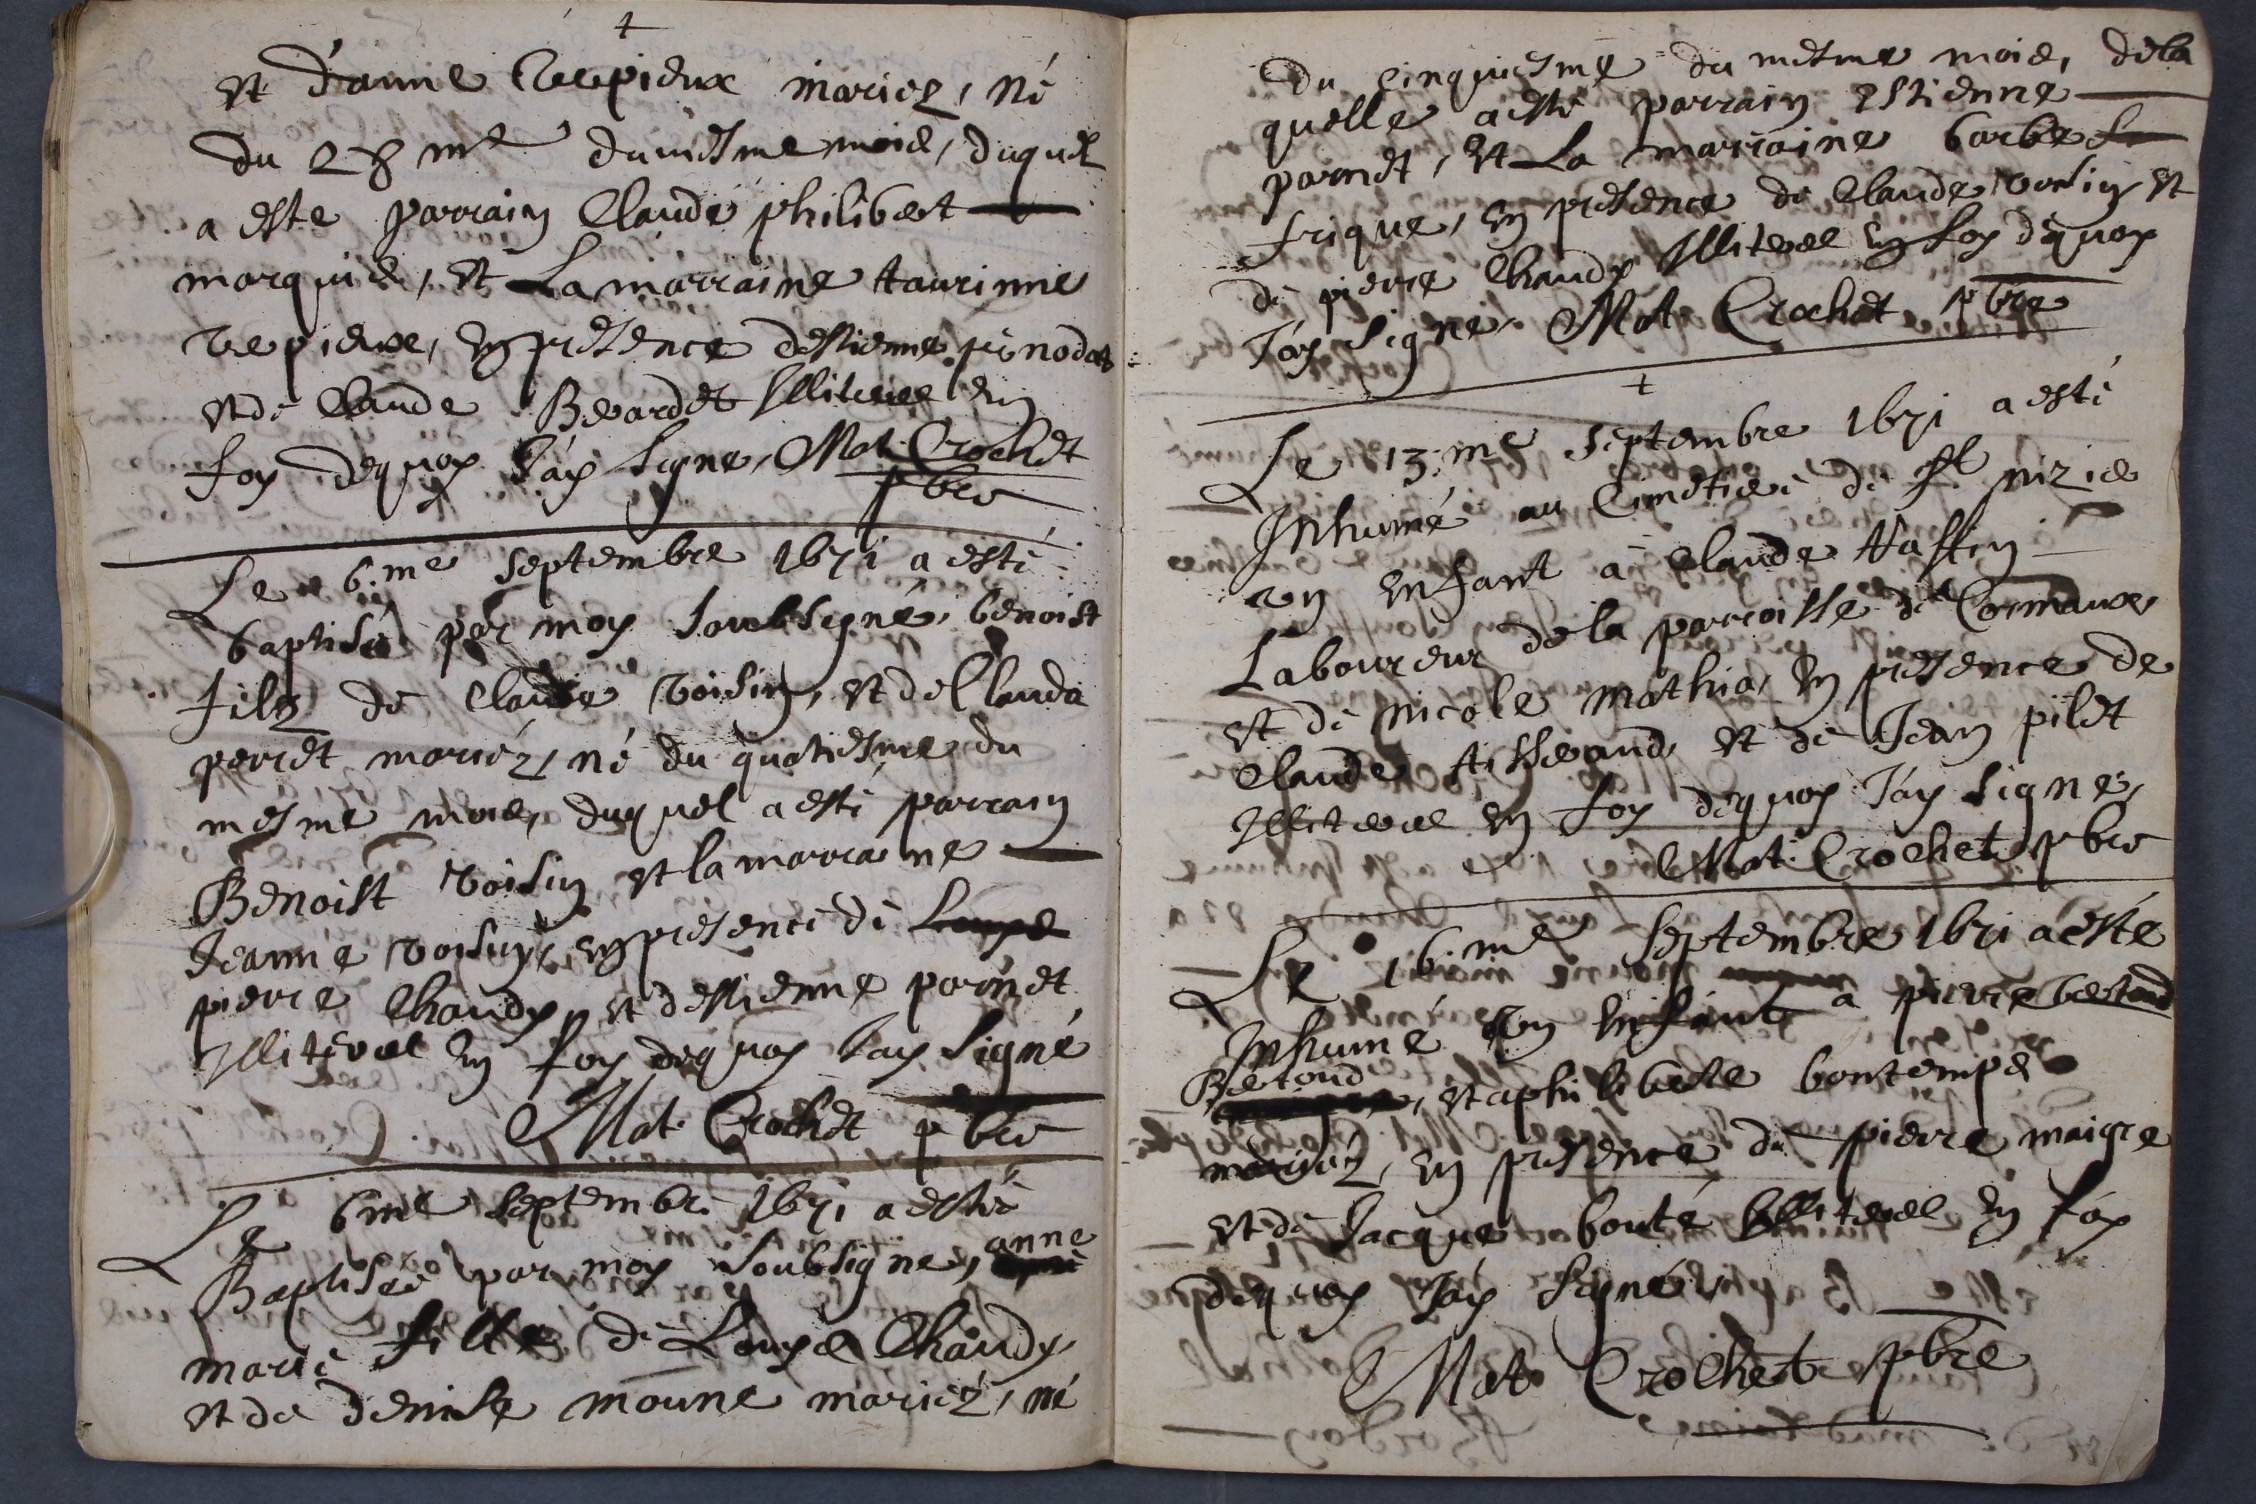 et d'anne Repieux mariez, né
du 28 me du mesme mois, duquel
a este parrain Claude philibert
marquis, et La marraine taurinne
repieux, en presence destienne penodet
et de Claude Berardet Illiteres en
foy dequoy J'ay signe, Mat. Crochet
pbre
Le 6.me septembre 1671 a esté
baptisé par moy soubsigné, benoist
filz de Claude Voisin, et de Clauda
perret mariéz, né du quatiesme du
mesme mois, duquel a esté parrain
Benoist Voisin et la marraine
Jeanne Voisin, en presence de Loupe
pierre Chaudy, et destienne parnet
Illiteres en foy dequoy Jay signé
Mat. Crochet pbre
Le 6me septembre 1671 a esté
Baptisée par moy soubsigne, anne
marie fille de Loupe Chaudy
et de denise moune mariez, né
du cinquiesme du mesme mois, dela
quelle a esté parrain estienne
parnet, et La marraine barbe La
frique, en presence de Claude voisin et
de pierre Chaudy Illiteres en foy dequoy
J'ay signe, Mat Crochet pbre
Le 13.me septembre 1671 a esté
Inhumé au Cimetiere de st nizie
un enfant a Claude
Laboureur de la parroisse de Cormaux
et de nicole mathia, en presence de
Claude tisserand, et de Jean pilet
Illiteres en foy dequoy J'ay signe,
Mat. Crochet pbre
Le 16.me septembre 1671 a esté
Inhumé un enfant a pierre
Betoud, et a philiberte bontemps
mariéz, en presence de pierre maigre
et de Jacque bouté Illiteres en foy
dequoy J'ay signé,
Mat Crochet pbre